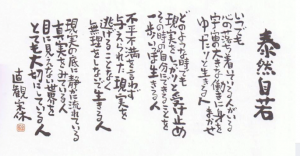 泰然自若
いつでも
心の落ち着いている人がいる
宇宙の大きな働きに身をまかせ
ゆったりと生きる人
どのような時でも
現実をしっかりと受け止め
その時の自分にできることを
一歩一歩生きる人
不平不満を言わず
与えられた現実から
逃げることなく
無理をしないで生きる人
現実の底に静かに流れている
真実をみている人
目に見えない世界を
とても大切にしている人
直観